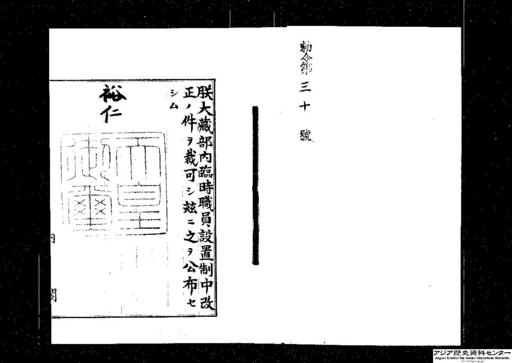 勅令第三十號
朕大藏部內臨時職員設置制中改
正ノ件ヲ裁可シ玆ニ之ヲ公布セ
シム
裕仁
天皇御璽
內閣
アジア歴史資料センター
Japan Center for Asian Historical Records